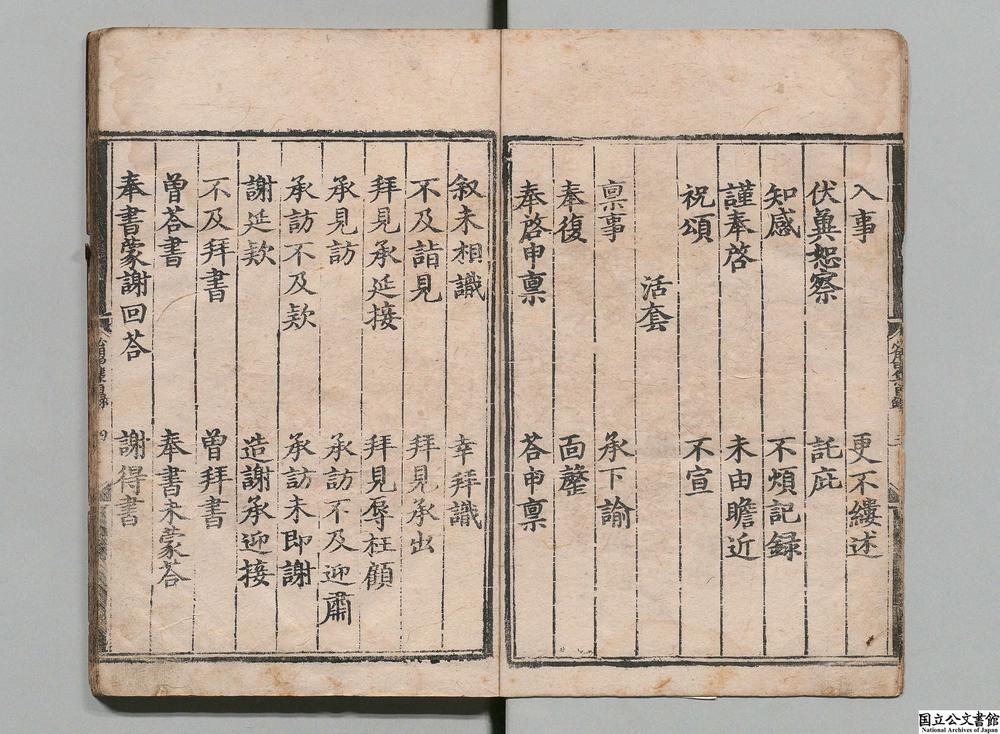 入事 更不縷述
伏冀恕察 託庇
知感 不煩記録
謹奉啓 未由瞻近
祝頌 不宣
活套
禀事 承下諭
奉復 面虀
奉啓申禀 荅申禀
叙未相識 幸拜識
不及詣見 拜見承出
拜見承延接 拜見辱枉顧
承見訪 承訪不及迎肅
承訪不及欵 承訪未即謝
謝延欵 造謝承迎接
不及拜書 曽拜書
曽荅書 奉書未蒙荅
奉書蒙謝回荅 謝得書
国立公文書館
National Archives of Japan